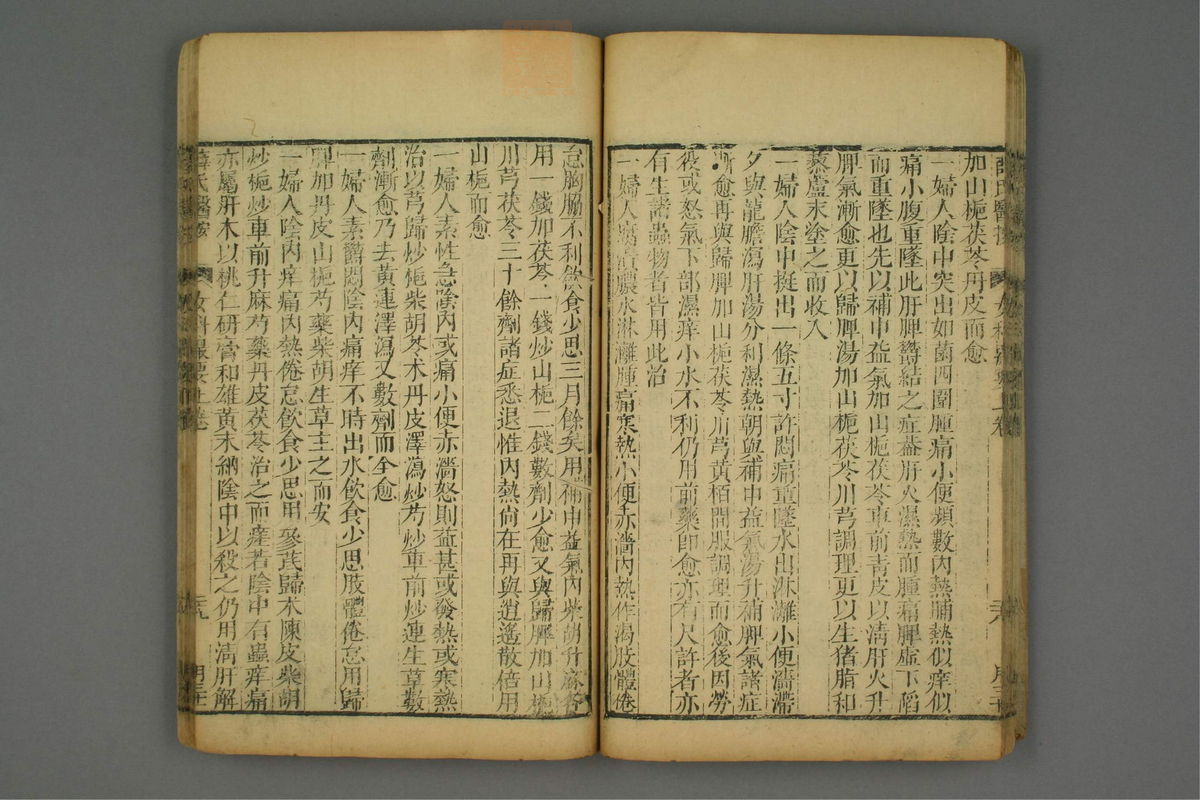 加山梔茯苓丹皮而愈
一婦人陰中突出如菌四圍腫痛小便頻數內熱晡熱似痒似
痛小腹重墜此肝脾鬱結之症蓋肝火濕熱而腫痛脾虛下陷
而重墜也先以補中益氣加山梔茯苓車前青皮以清肝火升
脾氣漸愈更以歸脾湯加山梔茯苓川芎調理更以生猪脂和
藜蘆末塗之而收入
一婦人陰中挺出一條五寸許悶痛重墜水出淋漓小便濇滯
夕與龍膽瀉肝湯分利濕熱朝與補中益氣湯升補脾氣諸症
漸愈再與歸脾加山梔茯苓川芎黃栢間服調理而愈後因勞
役或怒氣下部濕痒小水不利仍用前藥即愈亦有尺許者亦
有生諸蟲物者皆用此治
一婦人腐潰膿水淋漓腫痛寒熱小便赤濇內熱作渴肢體倦
怠胸脇不利飲食少思三月餘矣用補中益氣內柴胡升麻各
用一錢加茯苓一錢炒山梔二錢數劑少愈又與歸脾加山梔
川芎茯苓三十餘劑諸症悉退惟內熱尙在再與逍遙散倍用
山梔而愈
一婦人素性急陰內或痛小便赤濇怒則益甚或發熱或寒熱
治以芎歸炒梔柴胡苓朮丹皮澤瀉炒芍炒車前炒連生草數
劑漸愈乃去黃連澤瀉又數劑而全愈
一婦人素鬱悶陰內痛痒不時出水飲食少思肢體倦怠用歸
脾加丹皮山梔芍藥柴胡生草主之而安
一婦人陰內痒痛內熱倦怠飲食少思用參芪歸朮陳皮柴胡
炒梔炒車前升麻芍藥丹皮茯苓治之而痊若陰中有蟲痒痛
亦屬肝木以桃仁研膏和雄黃末納陰中以殺之仍用清肝解
薛氏醫案